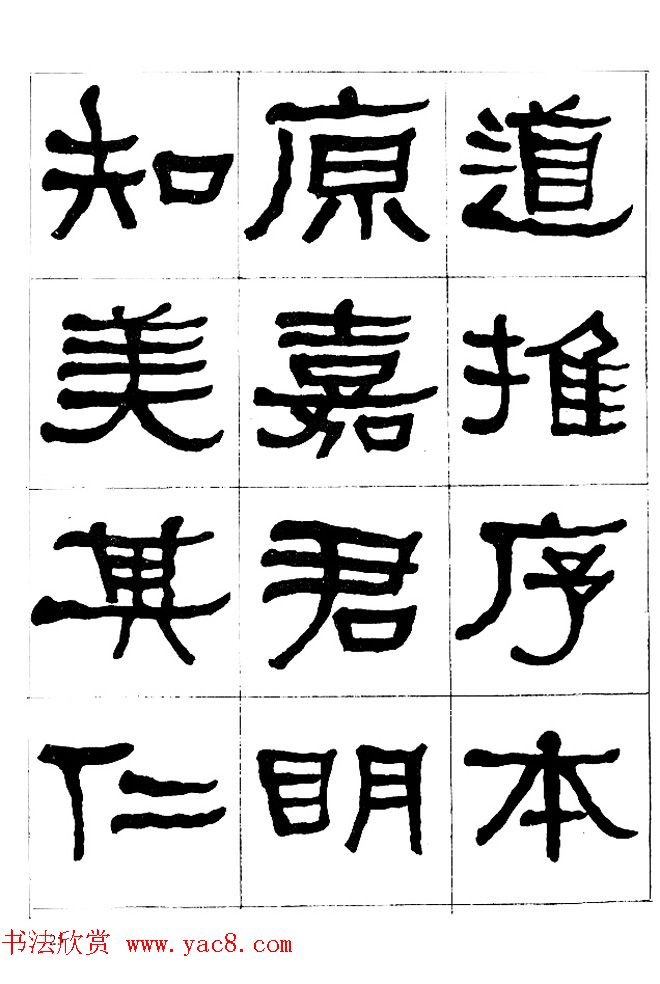 道推序本
原嘉君明
知美其仁
书法欣赏 www.yac8.com